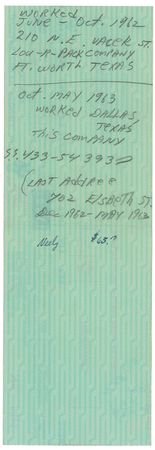 WORKED
JUNE - Oct. 1962
210 N.E. VACER ST.
LOW-R-PACK COMPANY
FT. WORTH TEXAS
Oct. MAY 1963
WORKED DALLAS,
TEXAS,
This COMPANY
S.S. 433-54 3930
(LAST ADdREE
702 ElsBETH ST.
Dec 1962 - MAY 1963
Neely $65.